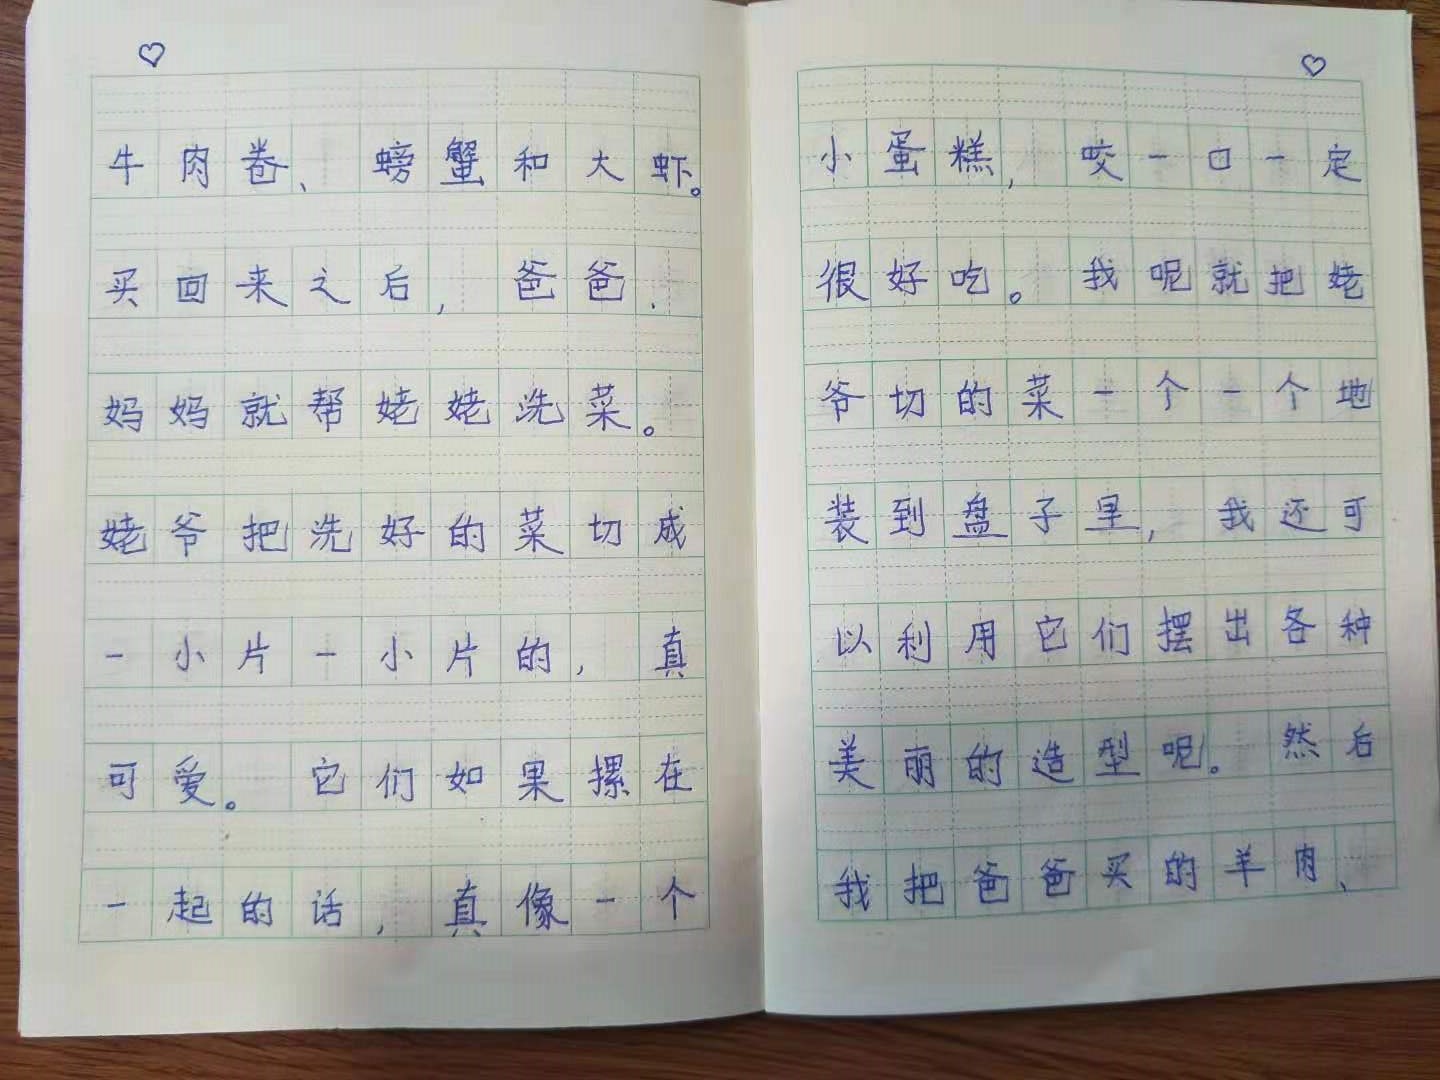 牛肉卷、螃蟹和大虾。
买回来之后，爸爸、
妈妈就帮姥姥洗菜。
姥爷把洗好的菜切成
一小片一小片的，真
可爱。它们如果摞在
一起的话，真像一个
小蛋糕，咬一口一定
很好吃。我呢就把姥
爷切的菜一个一个地
装到盘子里，我还可
以利用它们摆出各种
美丽的造型呢。然后
我把爸爸买的羊肉、